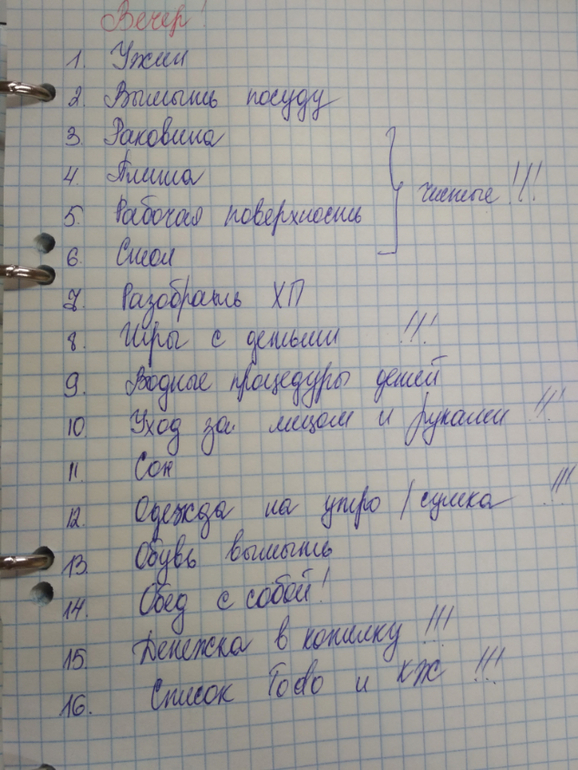 Вечер!
1. Ужин
2. Вымыть посуду
3. Раковина
4. Плита
5. Рабочая поверхность
6. Стол
чистые!!!
7. Разобрать ХП
8. Игры с детьми !!!
9. Водные процедуры детей
10 Уход за лицом и руками !!!
11 Сон
12. Одежда на утро / сумка !!!
13. Обувь вымыть
14. Обед с собой!
15. Денежка в копилку !!!
16. Список Todo и КЖ !!!